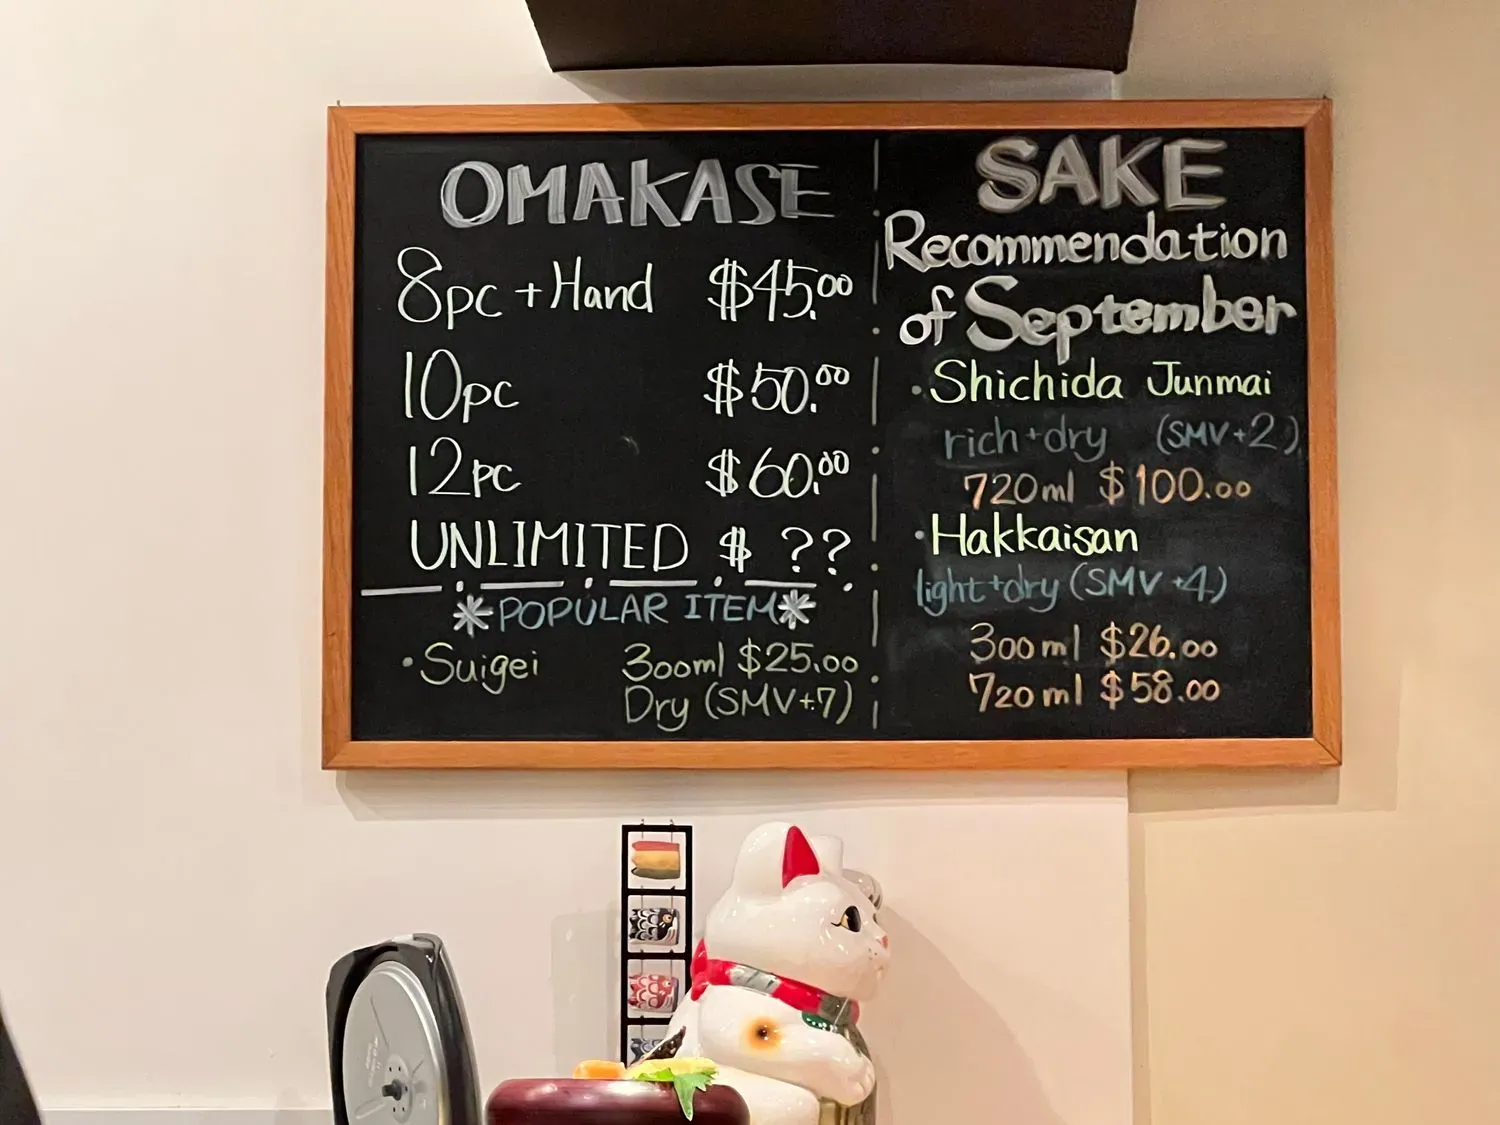 OMAKASE
8pc + Hand $45.00
10pc $50.00
12pc $60.00
UNLIMITED $ ??
*POPULAR ITEM*
・Suigei 300ml $25.00
Dry (SMV+7)
SAKE
Recommendation
of September
・Shichida Junmai
rich+dry (SMV+2)
720ml $100.00
・Hakkaisan
light+dry (SMV+4)
300ml $26.00
720ml $58.00